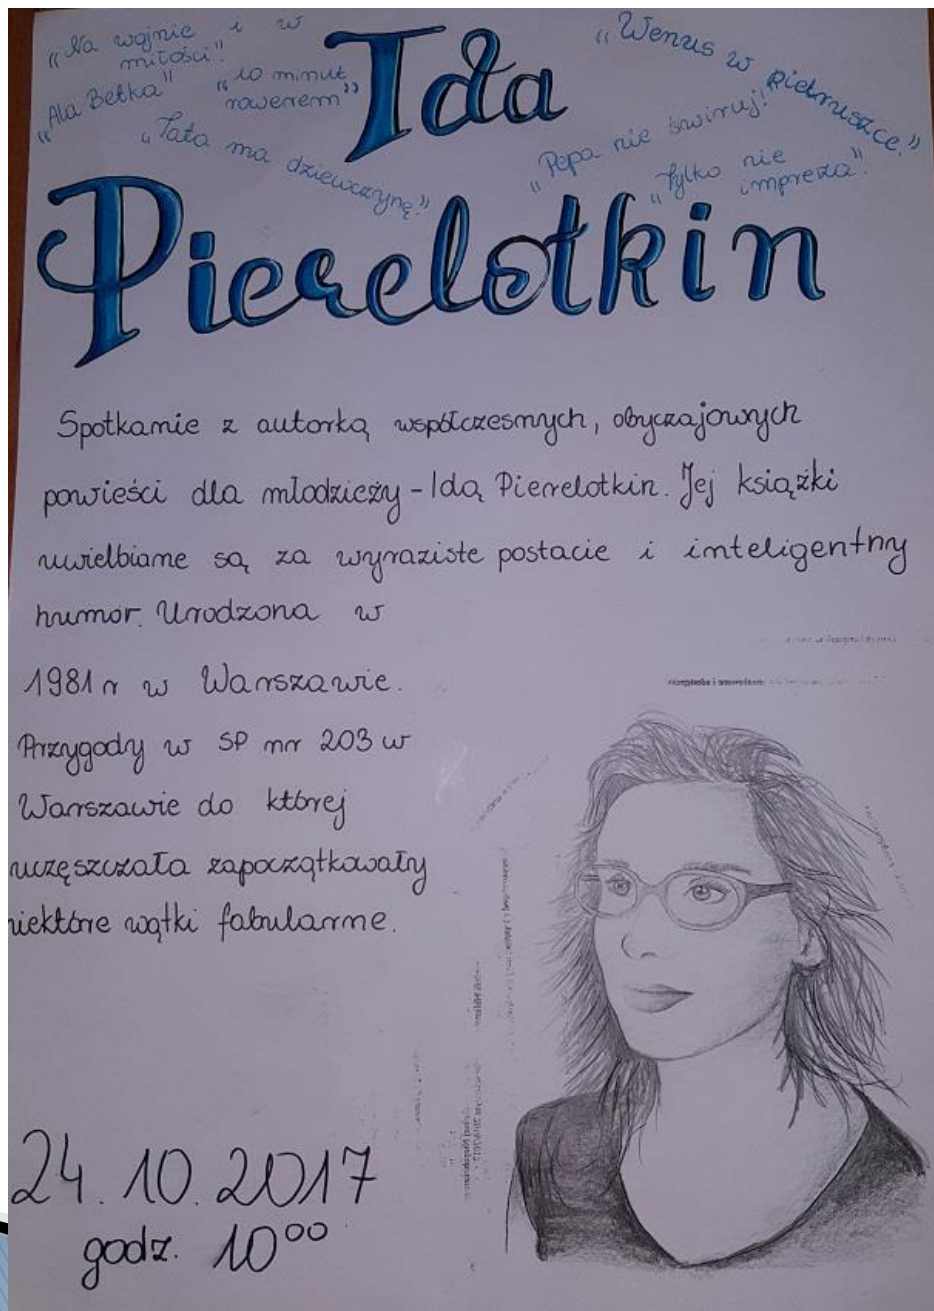 „Na wojnie i w
miłości!"
„Ala Betka"
„10 minut
rowerem"
„Tata ma dziewczynę!"
Ida
„Wenus w Pietruszce."
„Pepa nie świruj!"
„Tylko nie
impreza!"
Pierelotkin
Spotkanie z autorką współczesnych, obyczajowych
powieści dla młodzieży - Idą Pierelotkin. Jej książki
uwielbiane są za wyraziste postacie i inteligentny
humor. Urodzona w
1981 r w Warszawie.
Przygody w SP nr 203 w
Warszawie do której
uczęszczała zapoczątkowały
niektóre wątki fabularne.
24.10.2017
godz. 10⁰⁰